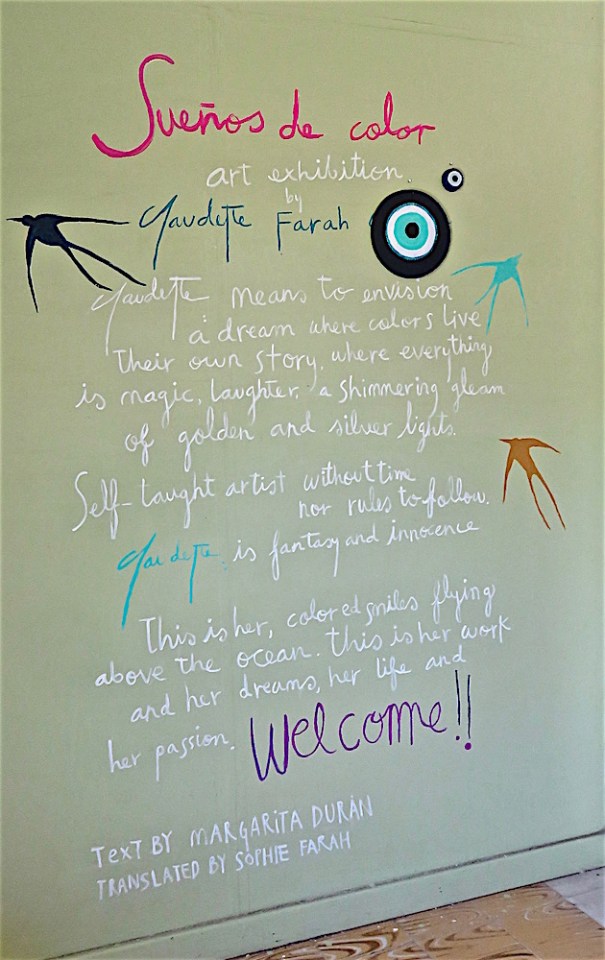 Sueños de color
art exhibition.
by
Yaudette Farah
Yaudette means to envision
a dream where colors live
their own story, where everything
is magic, laughter, a shimmering gleam
of golden and silver lights.
Self-taught artist without time
nor rules to follow.
Yaudette is fantasy and innocence
This is her, colored smiles flying
above the ocean. This is her work
and her dreams, her life and
her passion. Welcome!!
TEXT BY MARGARITA DURÁN
TRANSLATED BY SOPHIE FARAH